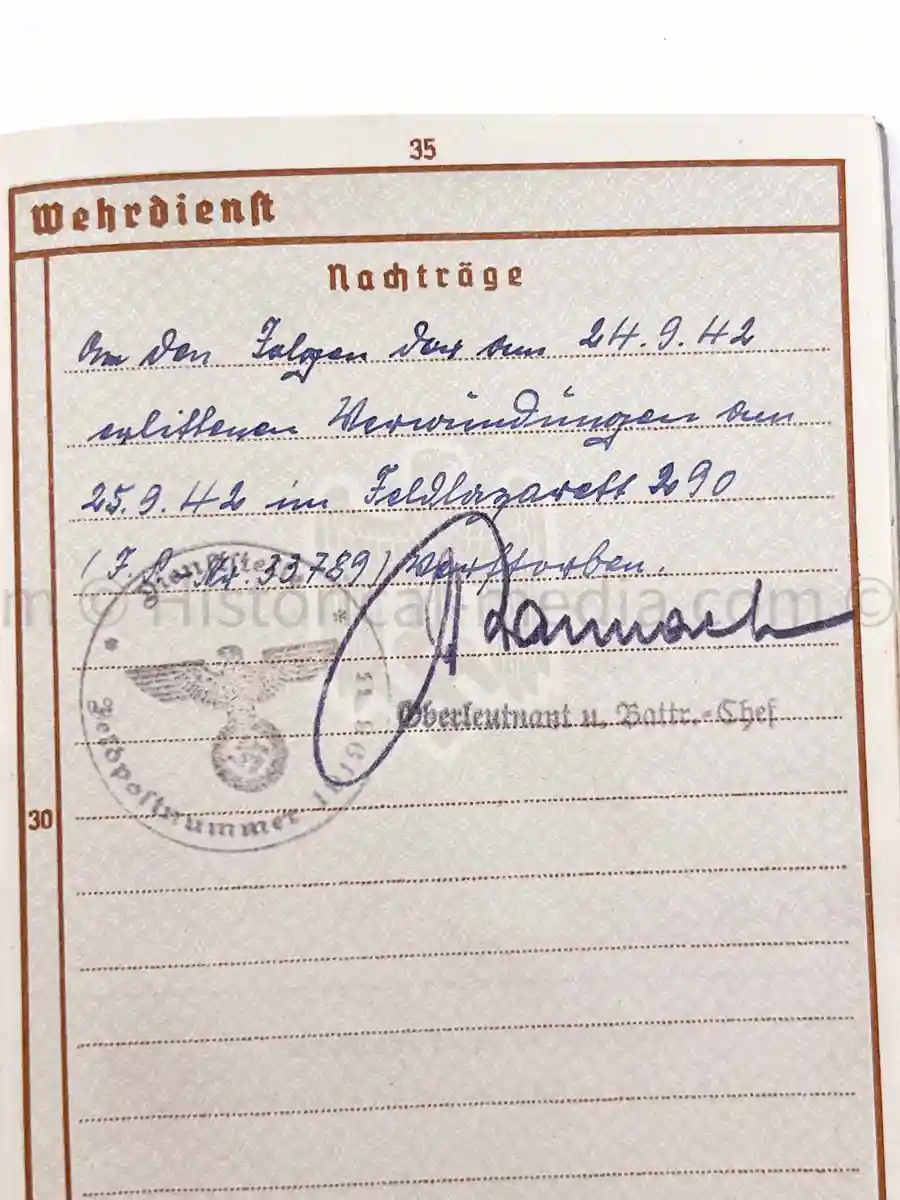 35
Wehrdienst
Nachträge
An den Folgen der am 24.9.42
erlittenen Verwundungen am
25.9.42 im Feldlazarett 290
(F.P. Nr. 33789) verstorben.
Dienststelle
Feldpostnummer
Oberleutnant u. Battr.-Chef
30
m © Historical-media.com ©